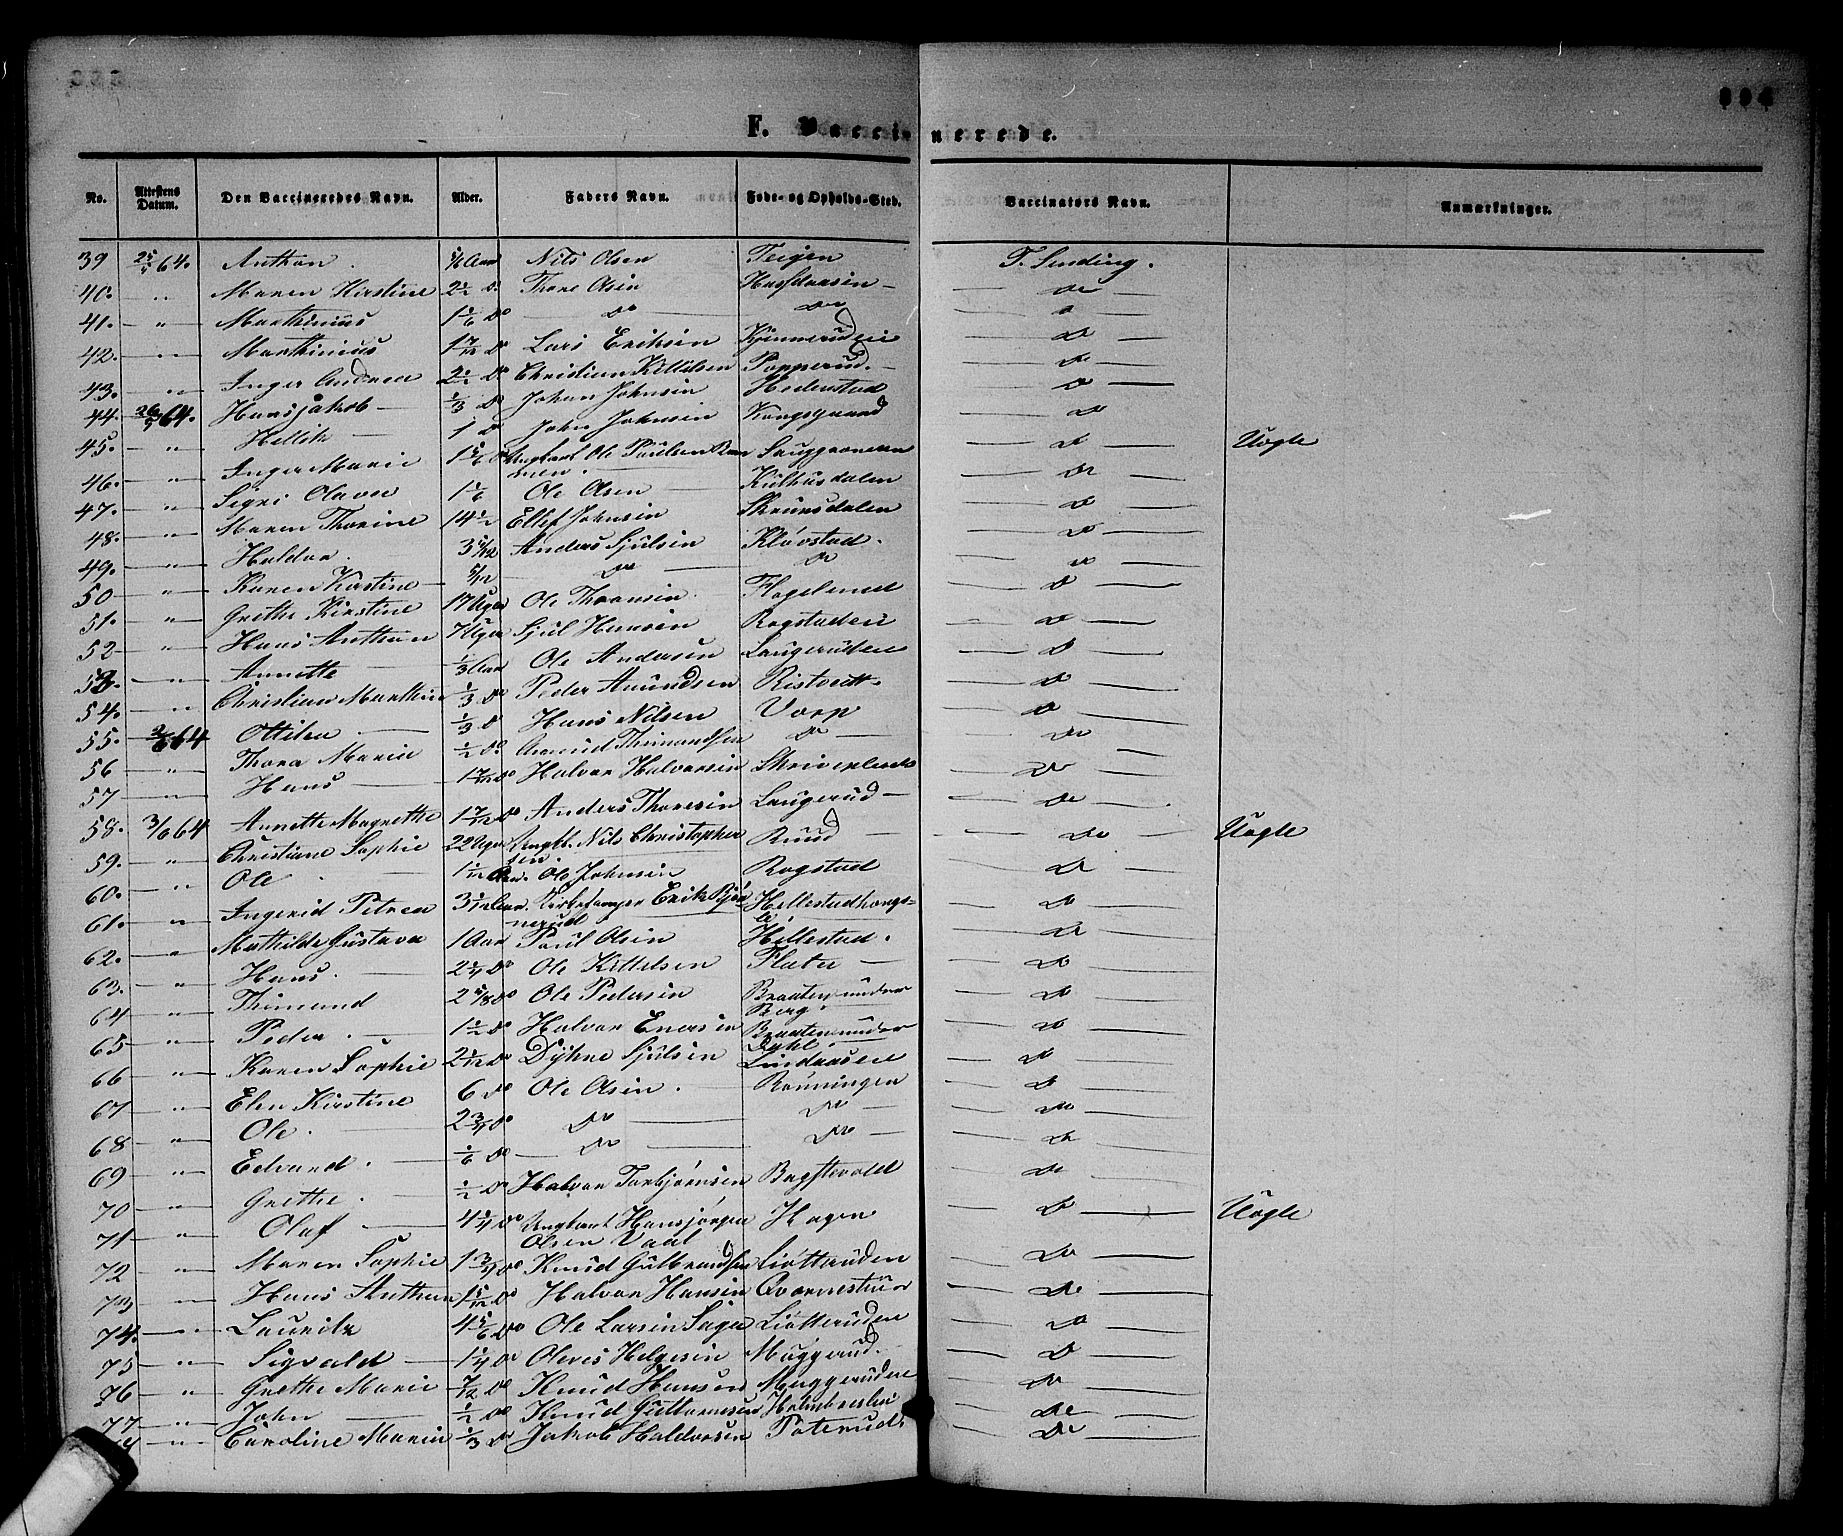 F. Vaccinerede.
No. Attestens Datum. Den Vaccineredes Navn. Alder. Faders Navn. Føde- og Opholds-Sted. Vaccinators Navn. Anmærkninger.
39 25/5 64. Anthon. Nils Olsen Teigen T. Sinding.
40. " Maren Kirstine 2 1/2 Do. Thore Olsen Do
41. " Marthinius 1 1/6 Do Do Do
42. " Marthinius 1 7/12 Do Lars Eriksen Do
43. " Inger Andrea 2 1/2 Do Christian Kittelsen Popperud. Do
44. 26/5 64. Hans Jakob 1/3 Do Johan Johnsen Hedenstad Do
45. " Hellik 1 Do John Johnsen Kongsgaard Do
46. " Inger Marie Ungkarl Ole Paulsen Do Uægte
47. " Sigri Olava 1 1/6 Ole Olsen Kulhusdalen Do
48. " Maren Thorine 14 1/2 Ellef Johnsen Skrimsdalen Do
49. " Haldor. 3 Anders Sjulsen Kløvstad. Do
50 " Karen Kirstine 5/12 Do Do Do
51. " Grethe Kirstine 17 Uger Ole Thoresen Do
52 " Hans Anthon 7 Uger Sjul Hansen Rogstadeie Do
53. " Annette 1/3 Aar Ole Andersen Laugeruden Do
54. " Christian Marthin 1/3 Do Peder Amundsen Ristvedt. Do
55. 2/6 64 Ottilia 1/3 Do Hans Nilsen Vorp Do
56 " Thora Marie 1/2 Do. Amund Thimandsen Do Do
57 " Hans 1 7/12 Do Halvor Halvorsen Do
58. 3/6 64 Annette Magrethe 1 7/12 Do Anders Thoresen Laugerud Do
59. " Christiane Sophie 22 Uger Ungk. Nils Christophersen. Ruud Do Uægte
60. " Ole Ole Johnsen Rogstad Do
61. " Ingerid Petrea 3 Aar. Kirkesanger Erik Bjørnerud Do
62. " Mathilde Gustava 1 Aar Paul Olsen Hellestad. Do
63. " Hans. 2 Do Ole Kittelsen Flata Do
64 " Thimand 2 Do Ole Pedersen Braaten under Berg. Do
65 " Peder. 1 1/2 Do Halvor Enersen Braaten under Dahl. Do
66 " Karen Sophie 2 Do Dyhne Sjulsen Lindaasen Do
67 " Elen Kirstine 6 Do Ole Olsen. Rønningen Do
68 " Ole. 2 3/4 Do Do Do Do
69 " Edvard. 1/6 Do Do Do Do
70 " Grethe. 1/2 Do Halvor Torbjørnsen Do
71 " Olaf 4 Do Ungkarl Hans Jørgen Olsen Vaal Hagen Do Uægte
72 " Maren Sophie 1 3/4 Do Knud Gulbrandsen Liøtteruden Do
73 " Hans Anthon 1 Do Halvor Hansen Qværnestu Do
74. " Lauritz 4 5/6 Do Ole Larsen Saga Liøtteruden Do
75 " Sigvald 1 1/4 Do Oleves Helgesen Muggerud. Do
76 " Grethe Marie 7/12 Do Knud Hansen Muggeruden Do
77 " John 1/2 Do Knud Guttormsen Do
" Caroline Marie 1/3 Do Jakob Haldorsen Do